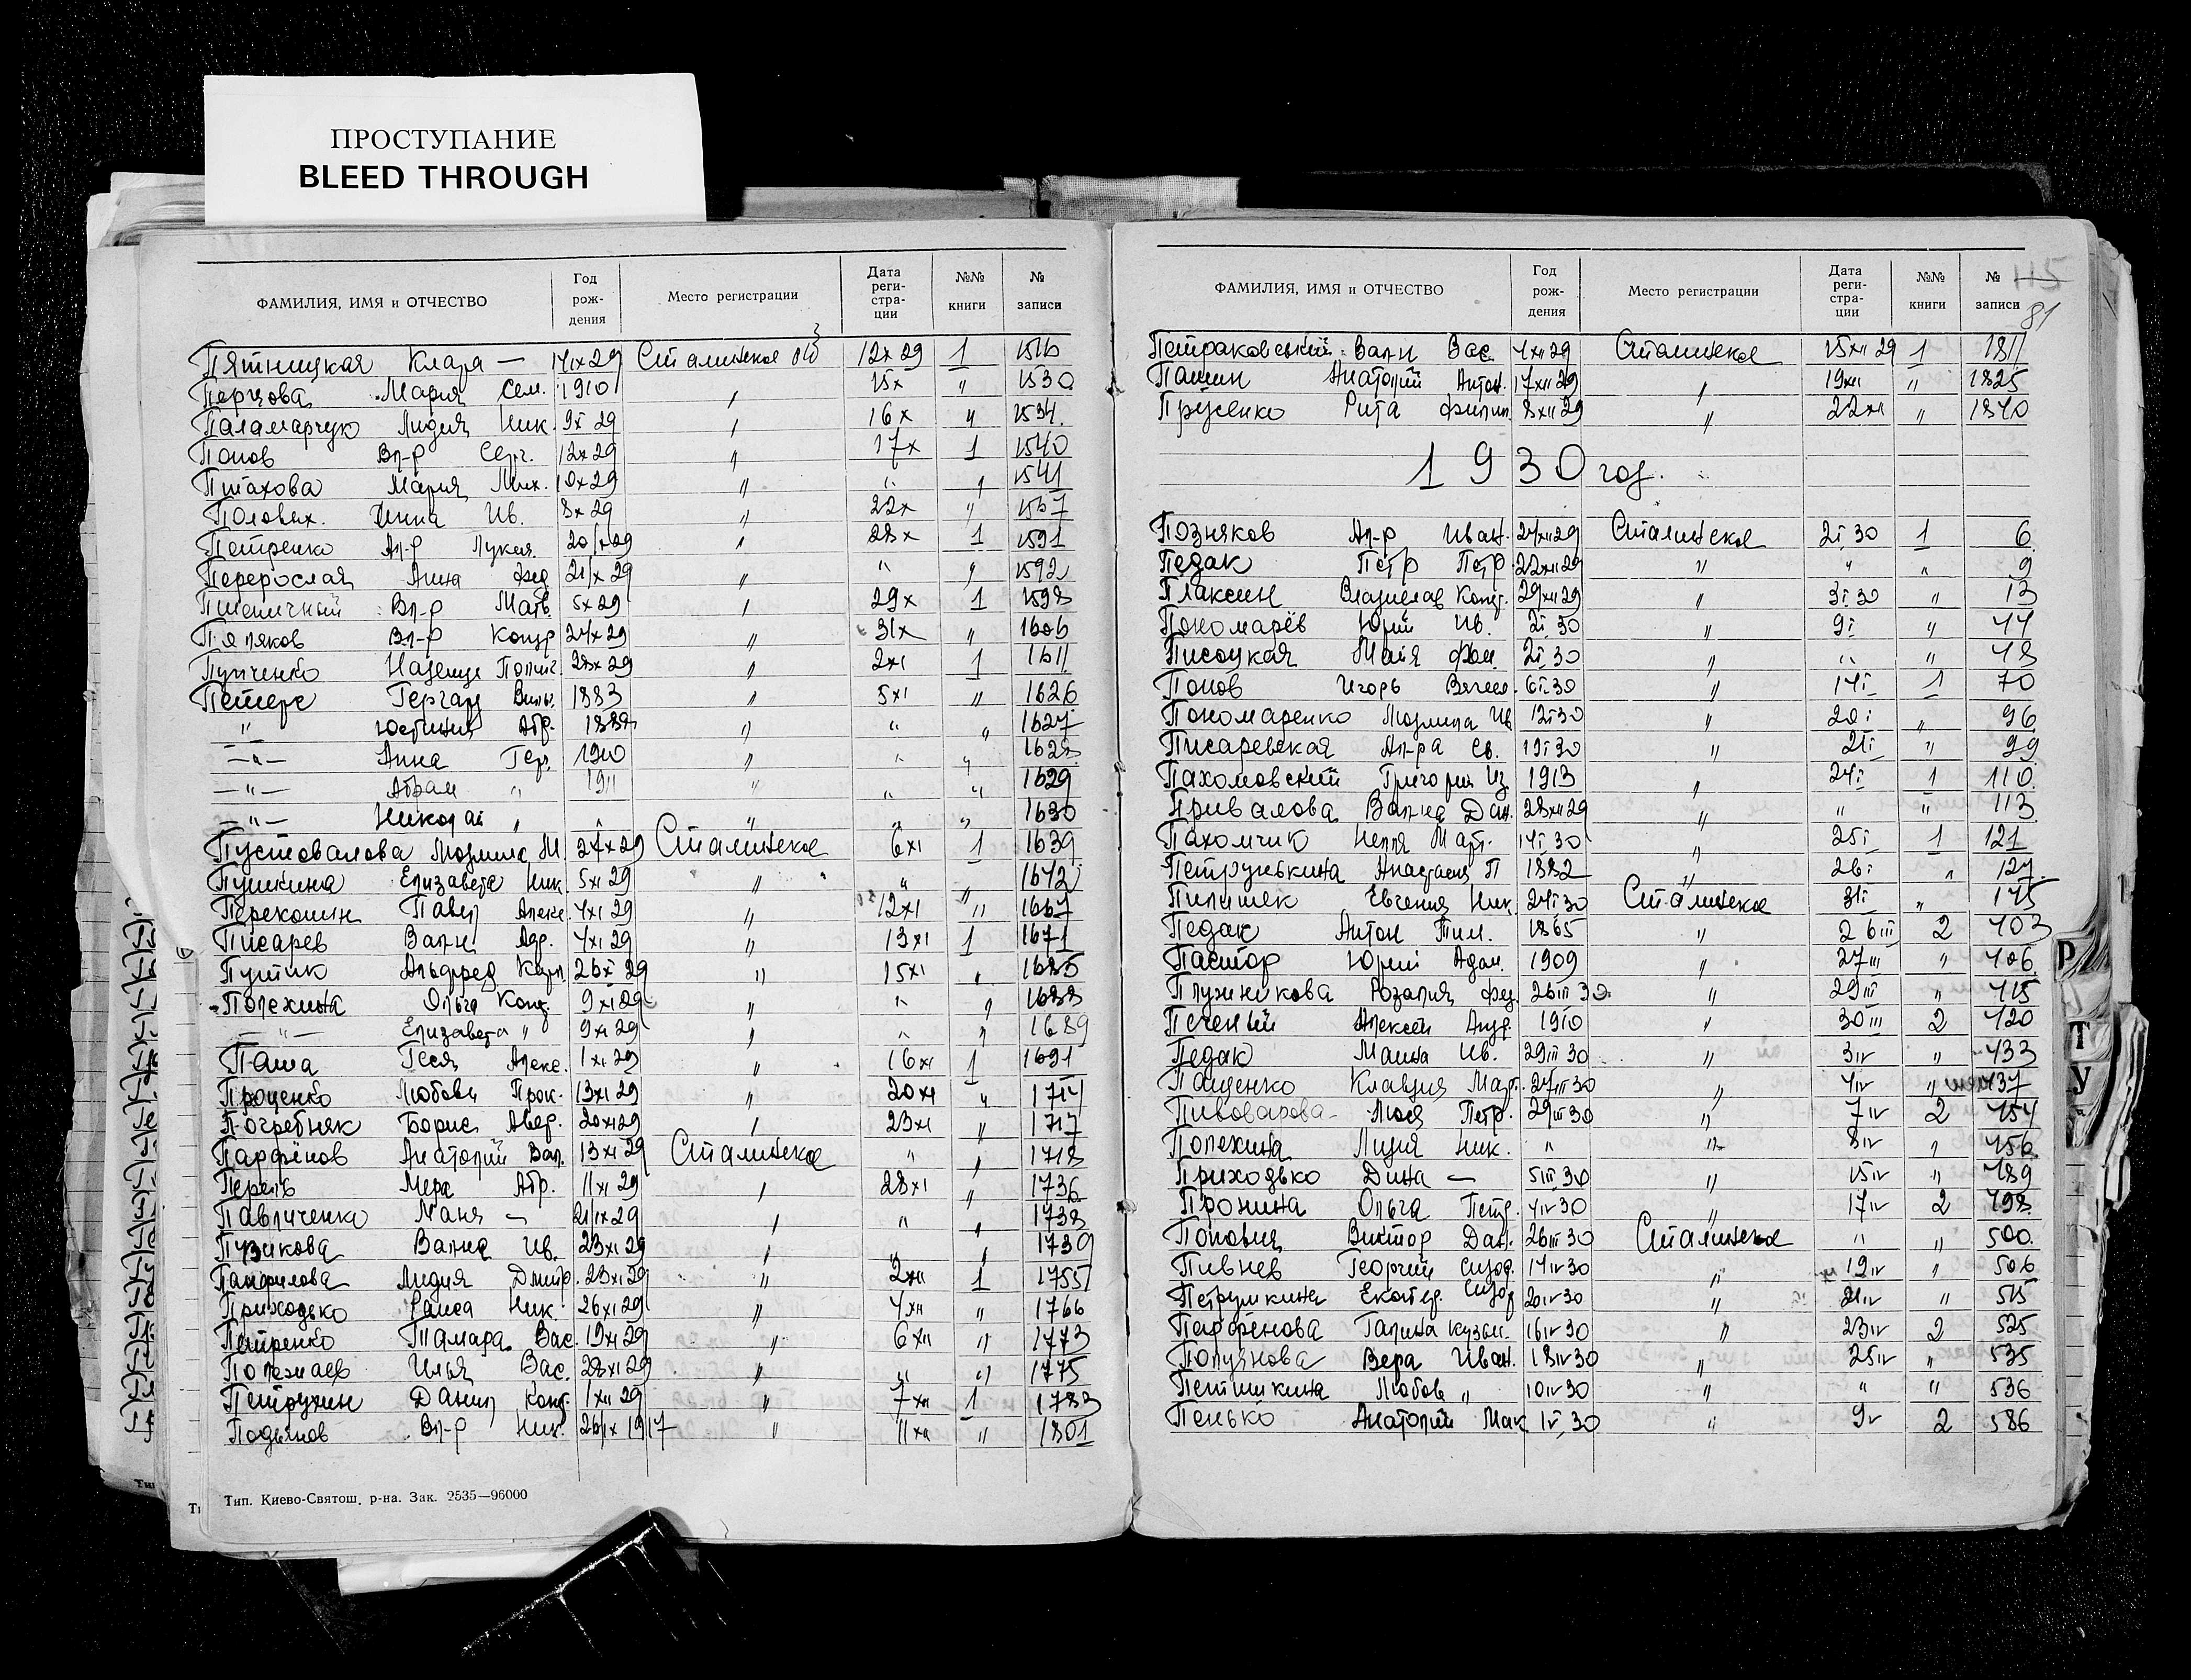 ПРОСТУПАНИЕ
BLEED THROUGH
ФАМИЛИЯ, ИМЯ и ОТЧЕСТВО Год рож- дения Место регистрации Дата реги- стра- ции №№ книги № записи
Пятницкая Клара — 14 IX 29 Сталинское 12 X 29 1 1516
Перцова Мария Сем. 1910 " 15 X " 1530
Паламарчук Лидия Ник. 9 X 29 " 16 X " 1534
Попов Вл-р Серг. 12 X 29 " 17 X 1 1540
Птахова Мария Мих. 10 X 29 " " " 1541
Половых Инна Ив. 8 X 29 " 22 X " 1567
Петренко Ал-р Лукич. 20/X 29 " 28 X 1 1591
Перерослая Анна Фед 21/X 29 " " " 1592
Пшеничный Вл-р Матв. 5 X 29 " 29 X 1 1598
Поляков Вл-р Конд 24 X 29 " 31 X " 1606
Пупченко 28 X 29 " 2 XI 1 1611
Петерс Герман Вильг. 1883 " 5 XI " 1626
" Юстиния Абр. 1887 " " " 1627
—"— Анна Гер. 1910 " " " 1628
—"— Абрам " 1911 " " " 1629
—"— Николай " " " " " 1630
Пустовалова Людмила М. 27 X 29 Сталинское 6 XI 1 1639
Пушкина Елизавета Ник. 5 XI 29 " " " 1642
Перекошин Павел Алекс. 4 XI 29 " 12 XI " 1667
Писарев Вал-н Адр. 4 XI 29 " 13 XI 1 1671
Путик Альфред Карл. 26 X 29 " 15 XI " 1685
Полехина Ольга Конд. 9 XI 29 " " " 1688
—"— Елизавета " 9 XI 29 " " " 1689
Паша Геся Алекс. 1 XI 29 " 16 XI 1 1691
Проценко Любовь Прок. 13 XI 29 " 20 XI " 1714
Погребняк Борис Авер. 20 XI 29 " 23 XI " 1717
Парфёнов Анатолий Вал. 13 XI 29 Сталинское " " 1718
Перель Мера Абр. 11 XI 29 " 28 XI " 1736
Павличенко Маня — 21/IX 29 " " " 1738
Пузикова Вал-на Ив. 23 XI 29 " " " 1739
Панфилова Лидия Дмитр. 23 XI 29 " 2 XII 1 1755
Приходько Раиса Ник. 26 XI 29 " 4 XII " 1766
Петренко Тамара Вас. 19 XI 29 " 6 XII " 1773
Полежаев Илья Вас. 28 XI 29 " " " 1775
Петрухин Данил Конд. 1 XII 29 " 7 XII 1 1783
Подьянов Вл-р Ник. 26/IX 1917 " 11 XII " 1801
Тип. Киево-Святош. р-на. Зак. 2535—96000
115
81
ФАМИЛИЯ, ИМЯ и ОТЧЕСТВО Год рож- дения Место регистрации Дата реги- стра- ции №№ книги № записи
Петраковский Вал-н Вас. 4 XII 29 Сталинское 15 XII 29 1 1811
Пашин Анатолий Антон. 17 XII 29 " 19 XII " 1825
Прусенко Рита Филип. 8 XII 29 " 22 XII " 1840
1930 год.
Позняков Ал-р Иван. 24 XII 29 Сталинское 2 I 30 1 6
Педак Петр Петр 22 XII 29 " " " 9
Плаксин Владислав Конд. 29 XII 29 " 3 I 30 " 13
Пономарёв Юрий Ив. 2 I 30 " 9 I " 44
Писоцкая Майя Фом. 2 I 30 " " " 48
Попов Игорь Вячесл. 6 I 30 " 14 I 1 70
Пономаренко Людмила Ив 12 I 30 " 20 I " 96
Писаревская Ал-ра Ев. 19 I 30 " 21 I " 99
Пахомовский Григорий Из 1913 " 24 I 1 110
Привалова Вал-на Дан. 28 XII 29 " " " 113
Пахомчик Нелля Март. 14 I 30 " 25 I 1 121
Петрунькина Анастасия П 1882 " 26 I " 127
Пилишек Евгения Ник. 24 I 30 Сталинское 31 I " 145
Педак Антон Тим. 1865 " 26 III 2 403
Пастор Юрий Адам. 1909 " 27 III " 406
Плужникова Розалия Фед. 26 III 30 " 29 III " 415
Печеный Алексей Андр. 1910 " 30 III 2 420
Педак Маина Ив. 29 III 30 " 3 IV " 433
Пащенко Клавдия Март. 27 III 30 " 4 IV " 437
Пивоварова Люся Петр. 29 III 30 " 7 IV 2 454
Полехина Лидия Ник. " " 8 IV " 456
Приходько Дина — 5 III 30 " 15 IV " 489
Пронина Ольга Петр. 4 IV 30 " 17 IV 2 498
Попович Виктор Дан. 26 III 30 Сталинское " " 500
Пивнев Георгий Сидор. 14 IV 30 " 19 IV " 506
Петрушкина Екатер. Сидор 20 IV 30 " 21 IV " 515
Парфёнова Галина Кузьм. 16 IV 30 " 23 IV 2 525
Полуянова Вера Иван. 18 IV 30 " 25 IV " 535
Петишкина Любовь " 10 IV 30 " " " 536
Пенько Анатолий Мак 1 V 30 " 9 V 2 586
Р
Т
У